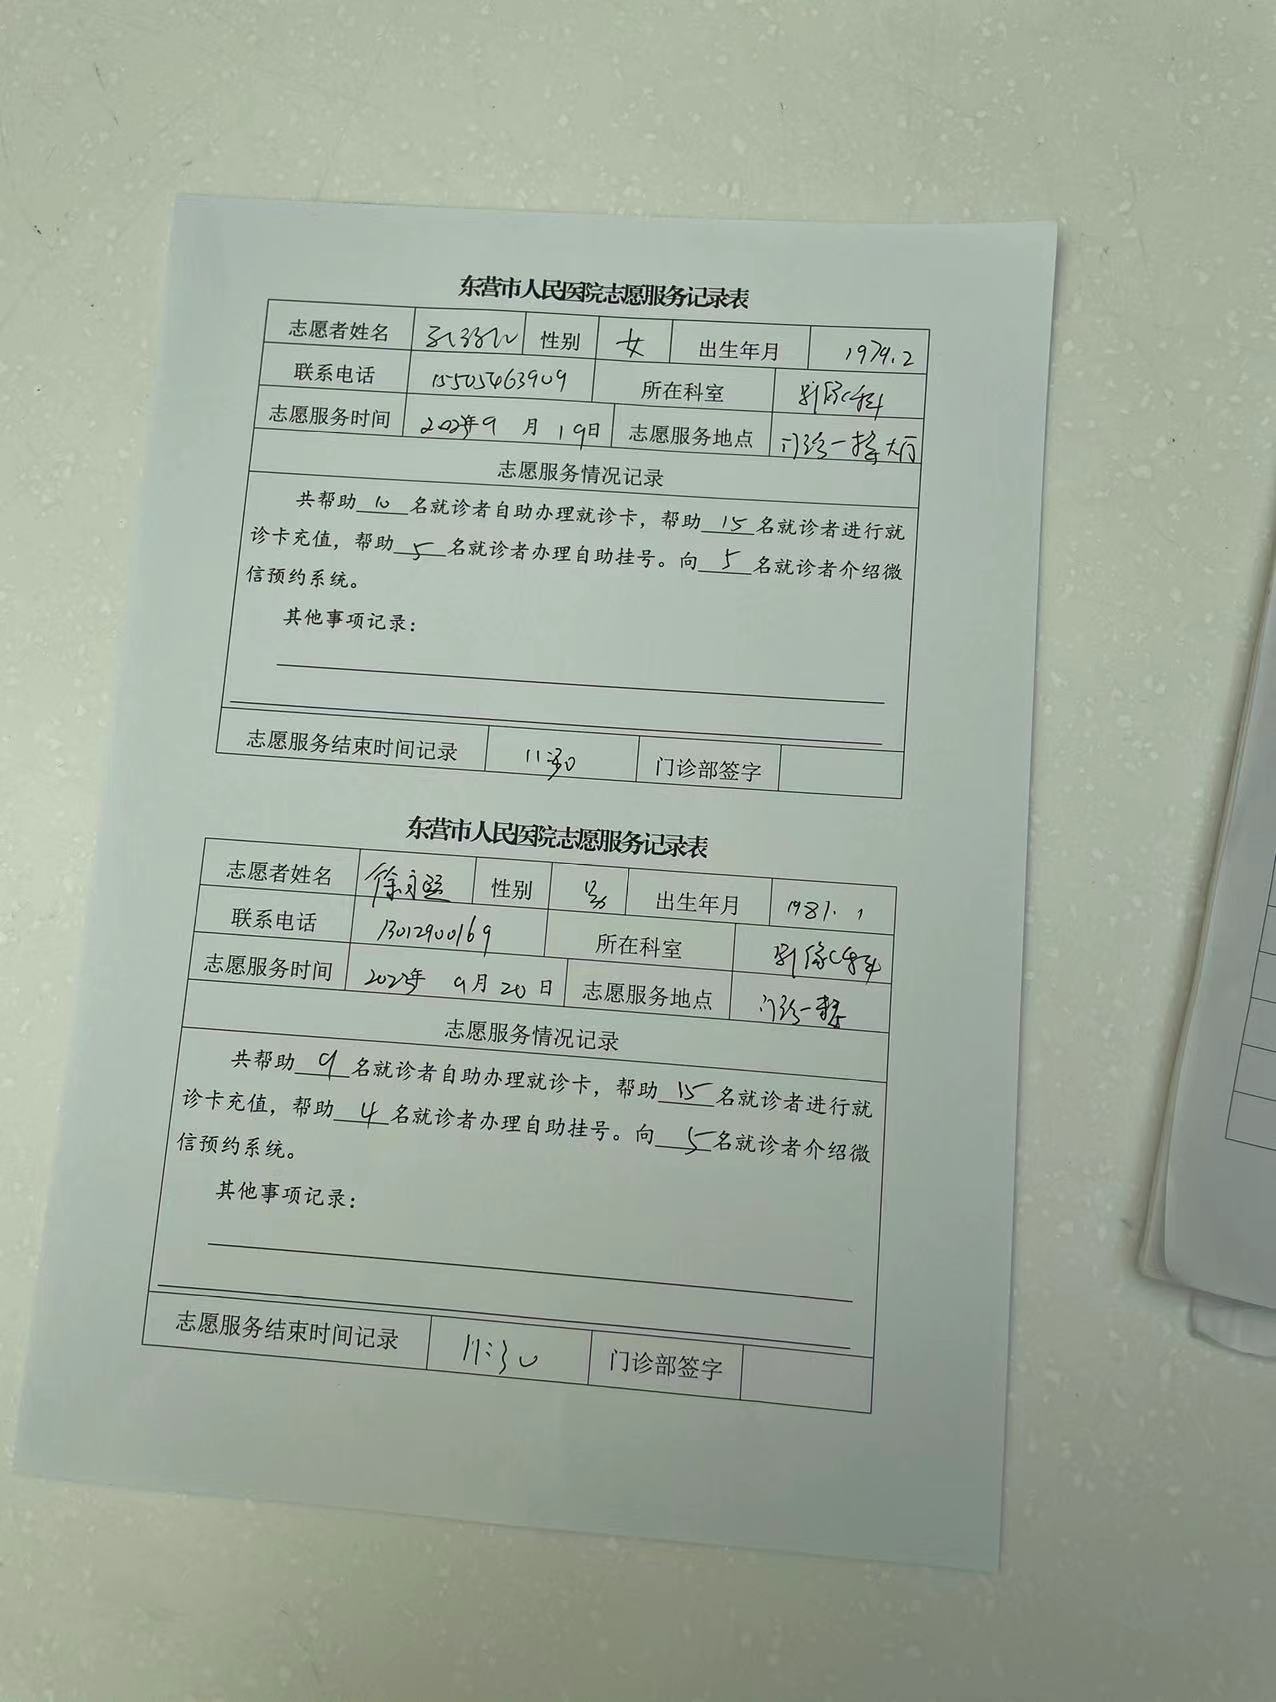 东营市人民医院志愿服务记录表
志愿者姓名 性别 女 出生年月 1979.2
联系电话 15505463909 所在科室
志愿服务时间 2022年9月19日 志愿服务地点 门诊一楼大厅
志愿服务情况记录
共帮助10名就诊者自助办理就诊卡，帮助15名就诊者进行就
诊卡充值，帮助5名就诊者办理自助挂号。向5名就诊者介绍微
信预约系统。
其他事项记录：
志愿服务结束时间记录 11:30 门诊部签字
东营市人民医院志愿服务记录表
志愿者姓名 徐 性别 男 出生年月 1981.1
联系电话 13012900169 所在科室
志愿服务时间 2022年9月20日 志愿服务地点 门诊一楼
志愿服务情况记录
共帮助9名就诊者自助办理就诊卡，帮助15名就诊者进行就
诊卡充值，帮助4名就诊者办理自助挂号。向5名就诊者介绍微
信预约系统。
其他事项记录：
志愿服务结束时间记录 11:30 门诊部签字